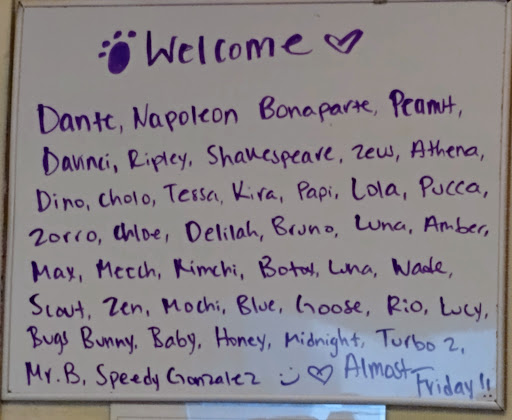 Welcome
Dante, Napoleon Bonaparte, Peanut,
Davinci, Ripley, Shakespeare, Zeus, Athena,
Dino, Cholo, Tessa, Kira, Papi, Lola, Pucca,
Zorro, Chloe, Delilah, Bruno, Luna, Amber,
Max, Meech, Kimchi, Botox, Luna, Wade,
Scout, Zen, Mochi, Blue, Goose, Rio, Lucy,
Bugs Bunny, Baby, Honey, Midnight, Turbo 2,
Mr. B, Speedy Gonzalez Almost
Friday!!